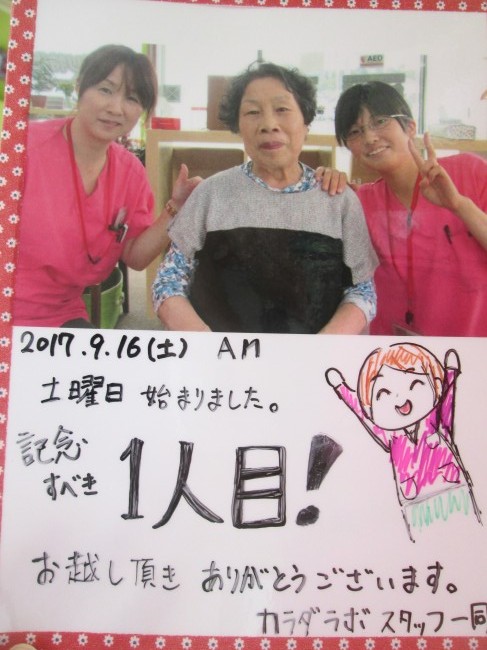 AED
2017.9.16(土) AM
土曜日 始まりました。
記念
すべき 1人目!
お越し頂き ありがとうございます。
カラダラボ スタッフ一同